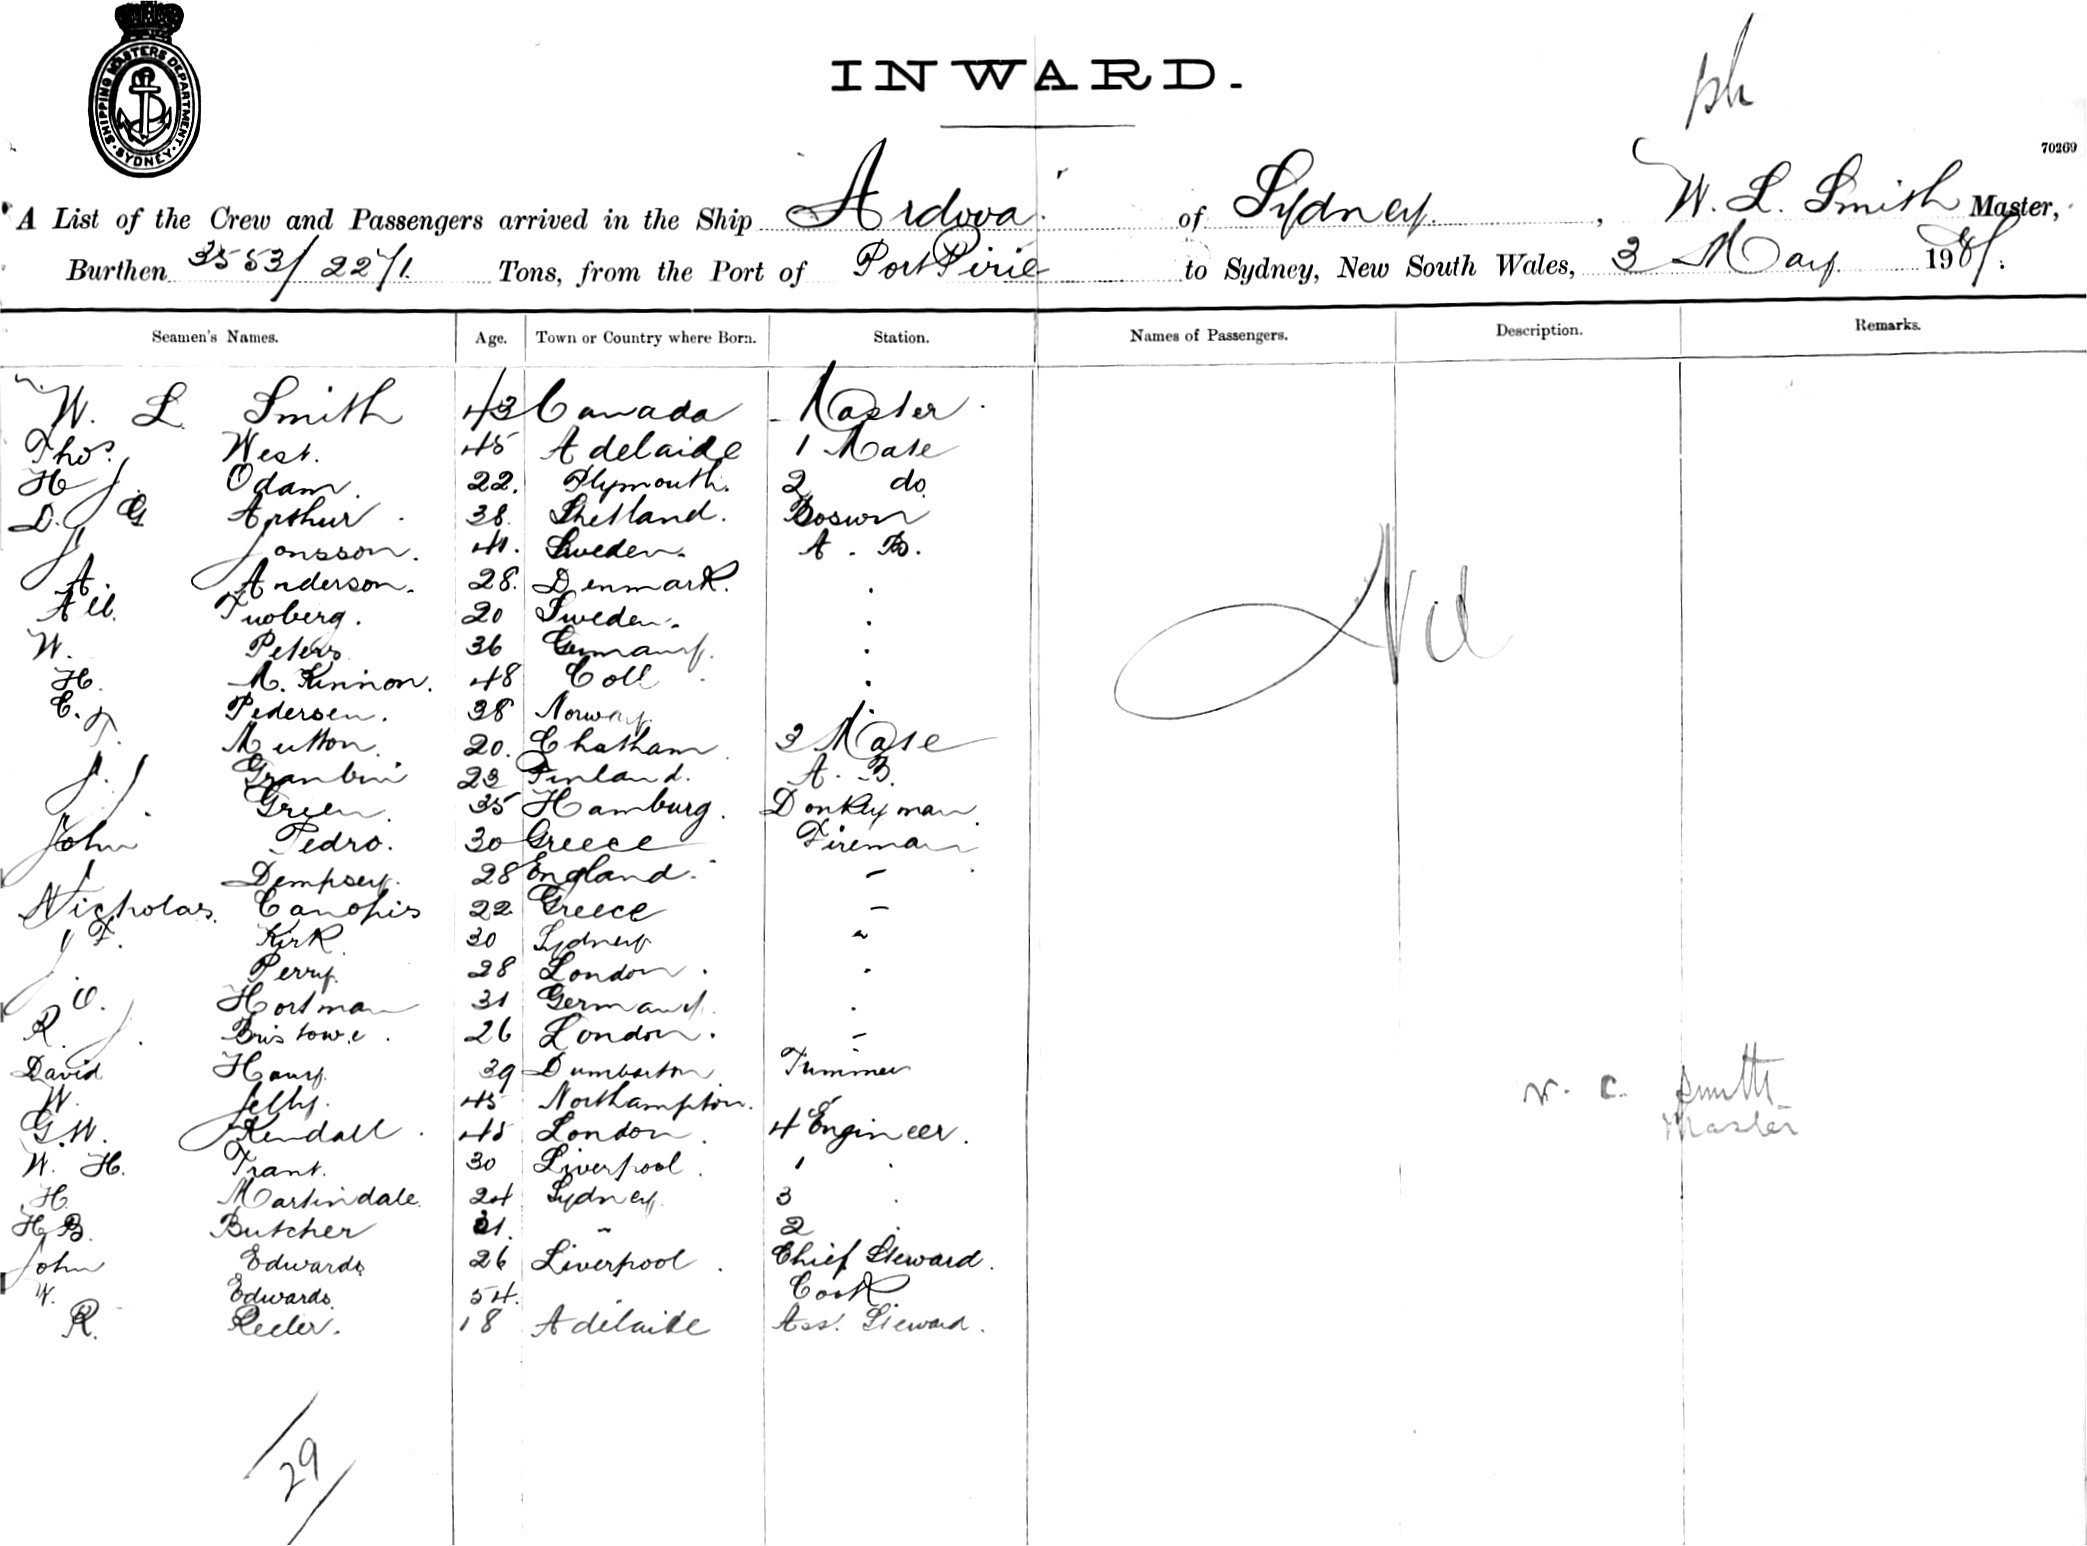 SHIPPING MASTERS DEPARTMENT · SYDNEY ·
INWARD.
70269
A List of the Crew and Passengers arrived in the Ship Ardova of Sydney, W. L. Smith Master,
Burthen 3553/2271 Tons, from the Port of Port Pirie to Sydney, New South Wales, 3 May 19
Seamen's Names. Age. Town or Country where Born. Station. Names of Passengers. Description. Remarks.
W. L Smith 43 Canada Master
Thos. West. 45 Adelaide 1 Mate
H J. Odam. 22. Plymouth. 2 do
D. G Arthur. 38. Shetland. Boswn
J Jonsson. 41. Sweden. A. B.
A. Anderson. 28. Denmark.
Alb. Tuoberg. 20 Sweden.
W. Peters 36 Germany.
H. M. Kinnon. 48 Coll
E. Pedersen. 38 Norway.
T. Mutton. 20. Chatham 3 Mate
J. Granbini 23 Finland. A. B.
J. Green. 35 Hamburg. Donkeyman.
John Pedro. 30 Greece Fireman
J Dempsey. 28 England. -
Nicholas. Canopis 22. Greece -
F. Kirk 30 Sydney "
J. Perry. 28 London.
O. Hortman 31 Germany.
R. J. Bristowe. 26 London. -
David Hauy. 39 Dumbarton Trimmer
W. Jelly. 45 Northampton.
G.W. Kendall. 45 London. 4 Engineer.
W. H. Trant. 30 Liverpool. 1
H. Martindale. 24 Sydney. 3
H.B. Butcher 31. " 2
John Edwards 26 Liverpool. Chief Steward.
W. Edwards. 54. Cook
R. Reeler. 18 Adelaide Ass. Steward.
Nil
W. C. Smith
Master
29